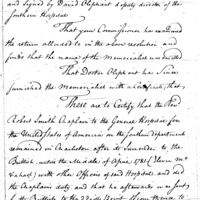 and signed by David Olyphant deputy director of the
Southern Hospitals
That your Commissioner has examined
the return alluded to in the above resolution and
finds that the name of the Memorialist was omitted
That Doctor Olyphant has since
furnished the Memorialist with a Certificate, that
These are to Certify that the Revd
Robert Smith Chaplain to the General Hospitals for
the United States of America in the Southern department
remained in Charleston after its surrender to the
British, until the Middle of April 1781 (Eleven Mos
& a half) with other Officers of said Hospitals and did
the Chaplains duty and that he afterwards was sent
by the British to